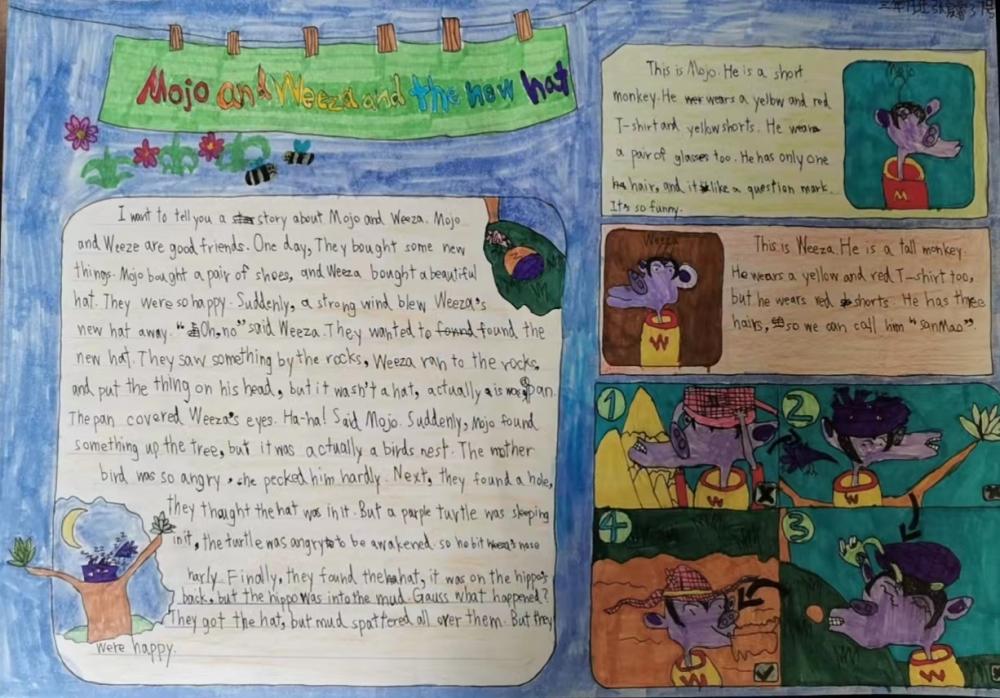 Mojo and Weeza and the new hat
I want to tell you a story about Mojo and Weeza. Mojo
and Weeze are good friends. One day, They bought some new
things. Mojo bought a pair of shoes, and Weeza bought a beautiful
hat. They were so happy. Suddenly, a strong wind blew Weeza's
new hat away. "Oh, no" said Weeza. They wanted to found the
new hat. They saw something by the rocks, Weeza ran to the rocks,
and put the thing on his head, but it wasn't a hat, actually is pan.
The pan covered Weeza's eyes. Ha-ha! Said Mojo. Suddenly, Mojo found
something up the tree, but it was actually a birds nest. The mother
bird was so angry, she pecked him hardly. Next, they found a hole,
they thought the hat was in it. But a parple turtle was sleeping
init, the turtle was angry to be awakened so he bit nose
harly. Finally, they found the hat, it was on the hippo's
back, but the hippo was into the mud. Gauss what happened?
They got the hat, but mud spattered all over them. But they
were happy.
This is Mojo. He is a short
monkey. He wears a yellow and red
T-shirt and yellow shorts. He wears
a pair of glasses too. He has only one
hair, and it like a question mark.
It's so funny.
Mojo
M
This is Weeza. He is a tall monkey.
He wears a yellow and red T-shirt too,
but he wears red shorts. He has three
hairs, so we can call him "sanMao".
Weeza
W
1
W
2
W
4
W
3
W